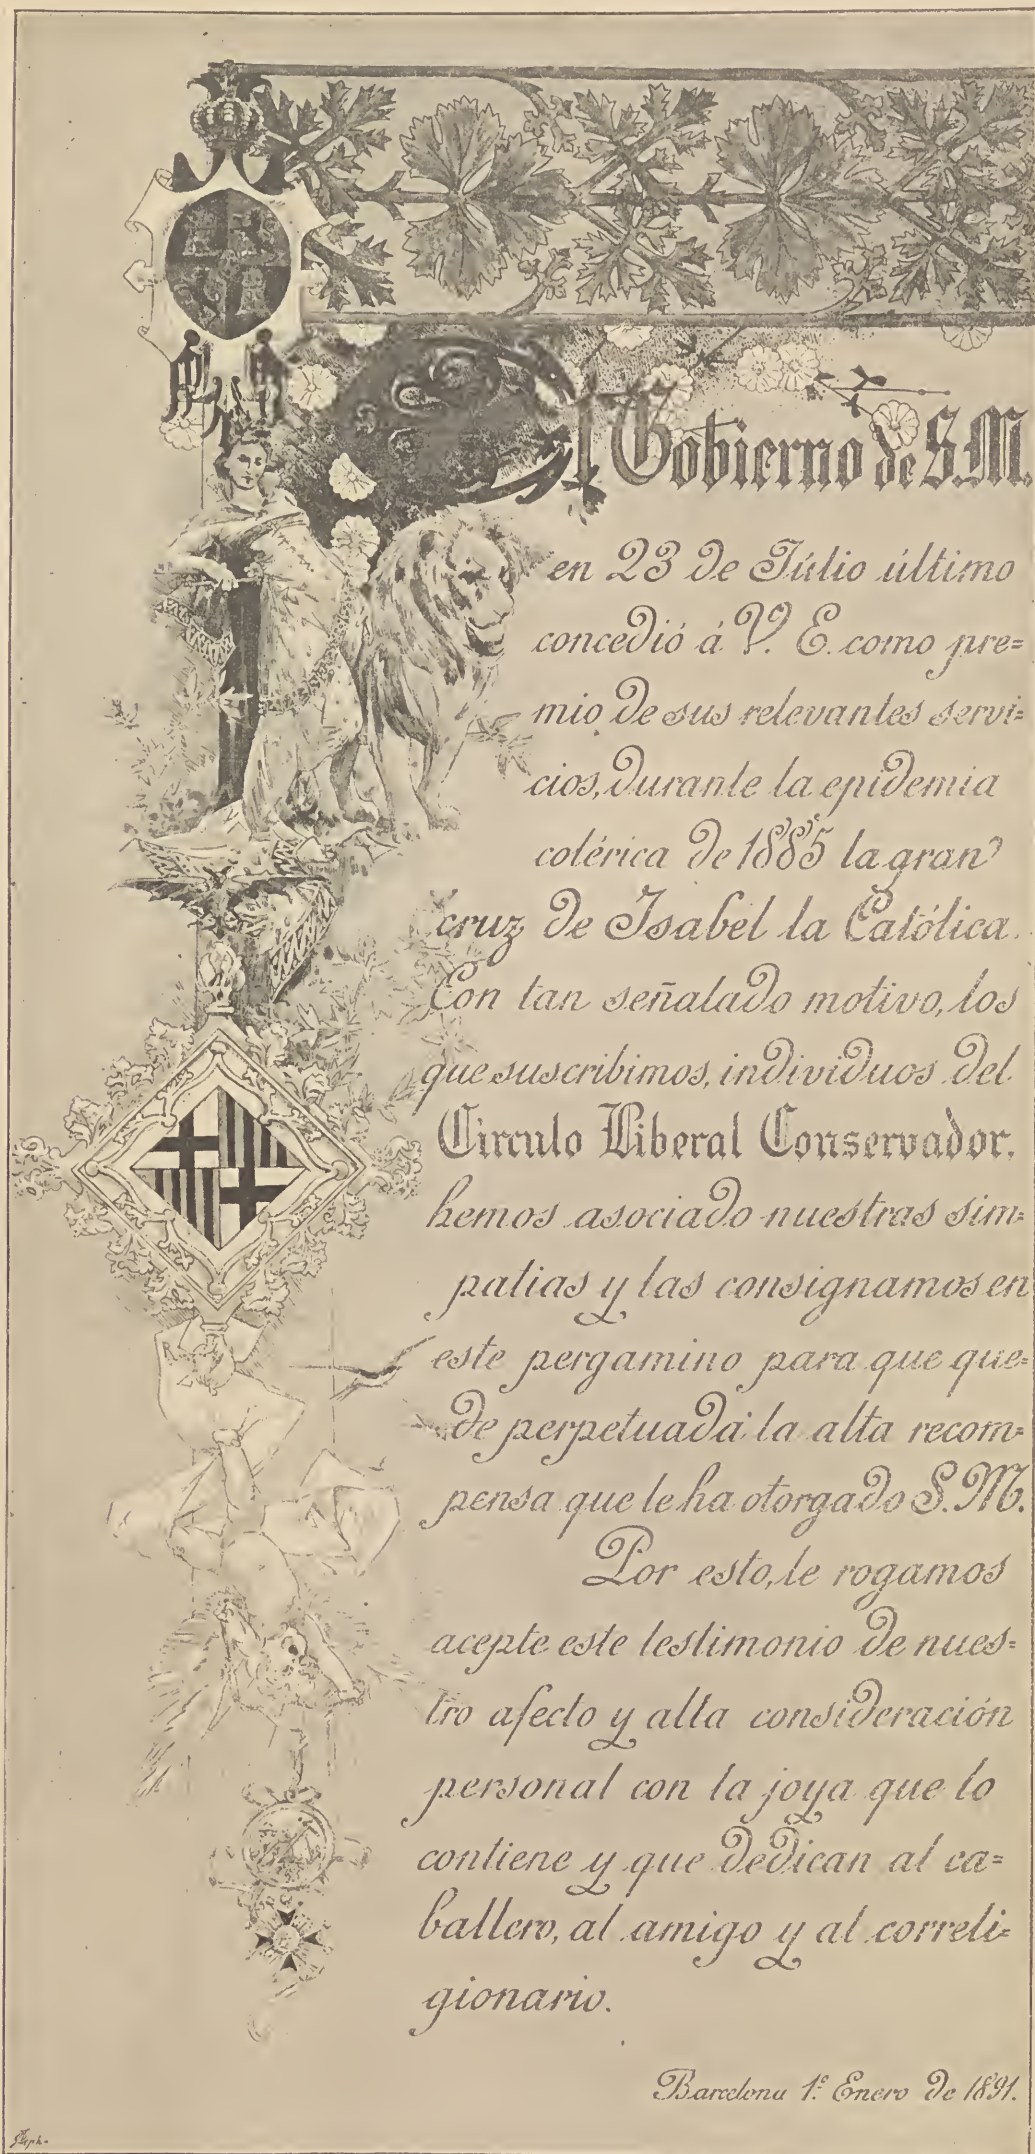 El Gobierno de S.M.
en 23 de Júlio último
concedió á V. E. como pre=
mio de sus relevantes servi=
cios, durante la epidemia
colérica de 1885 la gran
cruz de Isabel la Católica.
Con tan señalado motivo, los
que suscribimos, individuos del
Circulo Liberal Conservador,
hemos asociado nuestras sim=
patias y las consignamos en
este pergamino para que que=
de perpetuada la alta recom=
pensa que le ha otorgado S.M.
Por esto, le rogamos
acepte este testimonio de nues=
tro afecto y alta consideración
personal con la joya que lo
contiene y que dedican al ca=
ballero, al amigo y al correli=
gionario.
Barcelona 1º Enero de 1891.